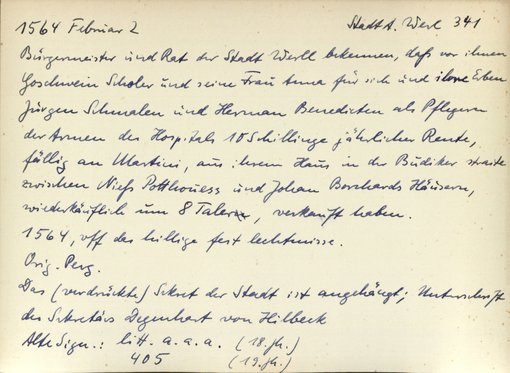 1564 Februar 2 Stadt A. Werl 341
Bürgermeister und Rat der Stadt Werll bekennen, daß vor ihnen
Goschwein Scholer und seine Frau Anna für sich und ihre Erben
Jürgen Schmalen und Herman Benedicten als Pflegern
der Armen des Hospitals 10 Schillinge jährlicher Rente,
fällig an Martini, aus ihrem Haus in der Büdiker straite
zwischen Niess Potthouess und Johan Borchards Häusern,
wiederkäuflich um 8 Taler, verkauft haben.
1564, vff des hillige fest lechtmisse.
Orig. Perg.
Das (verdrückte) Sekret der Stadt ist angehängt; Unterschrift
des Sekretärs Degenhart von Hilbeck
Alte Sign.: litt. a. a. a. (18. Jh.)
405 (19. Jh.)